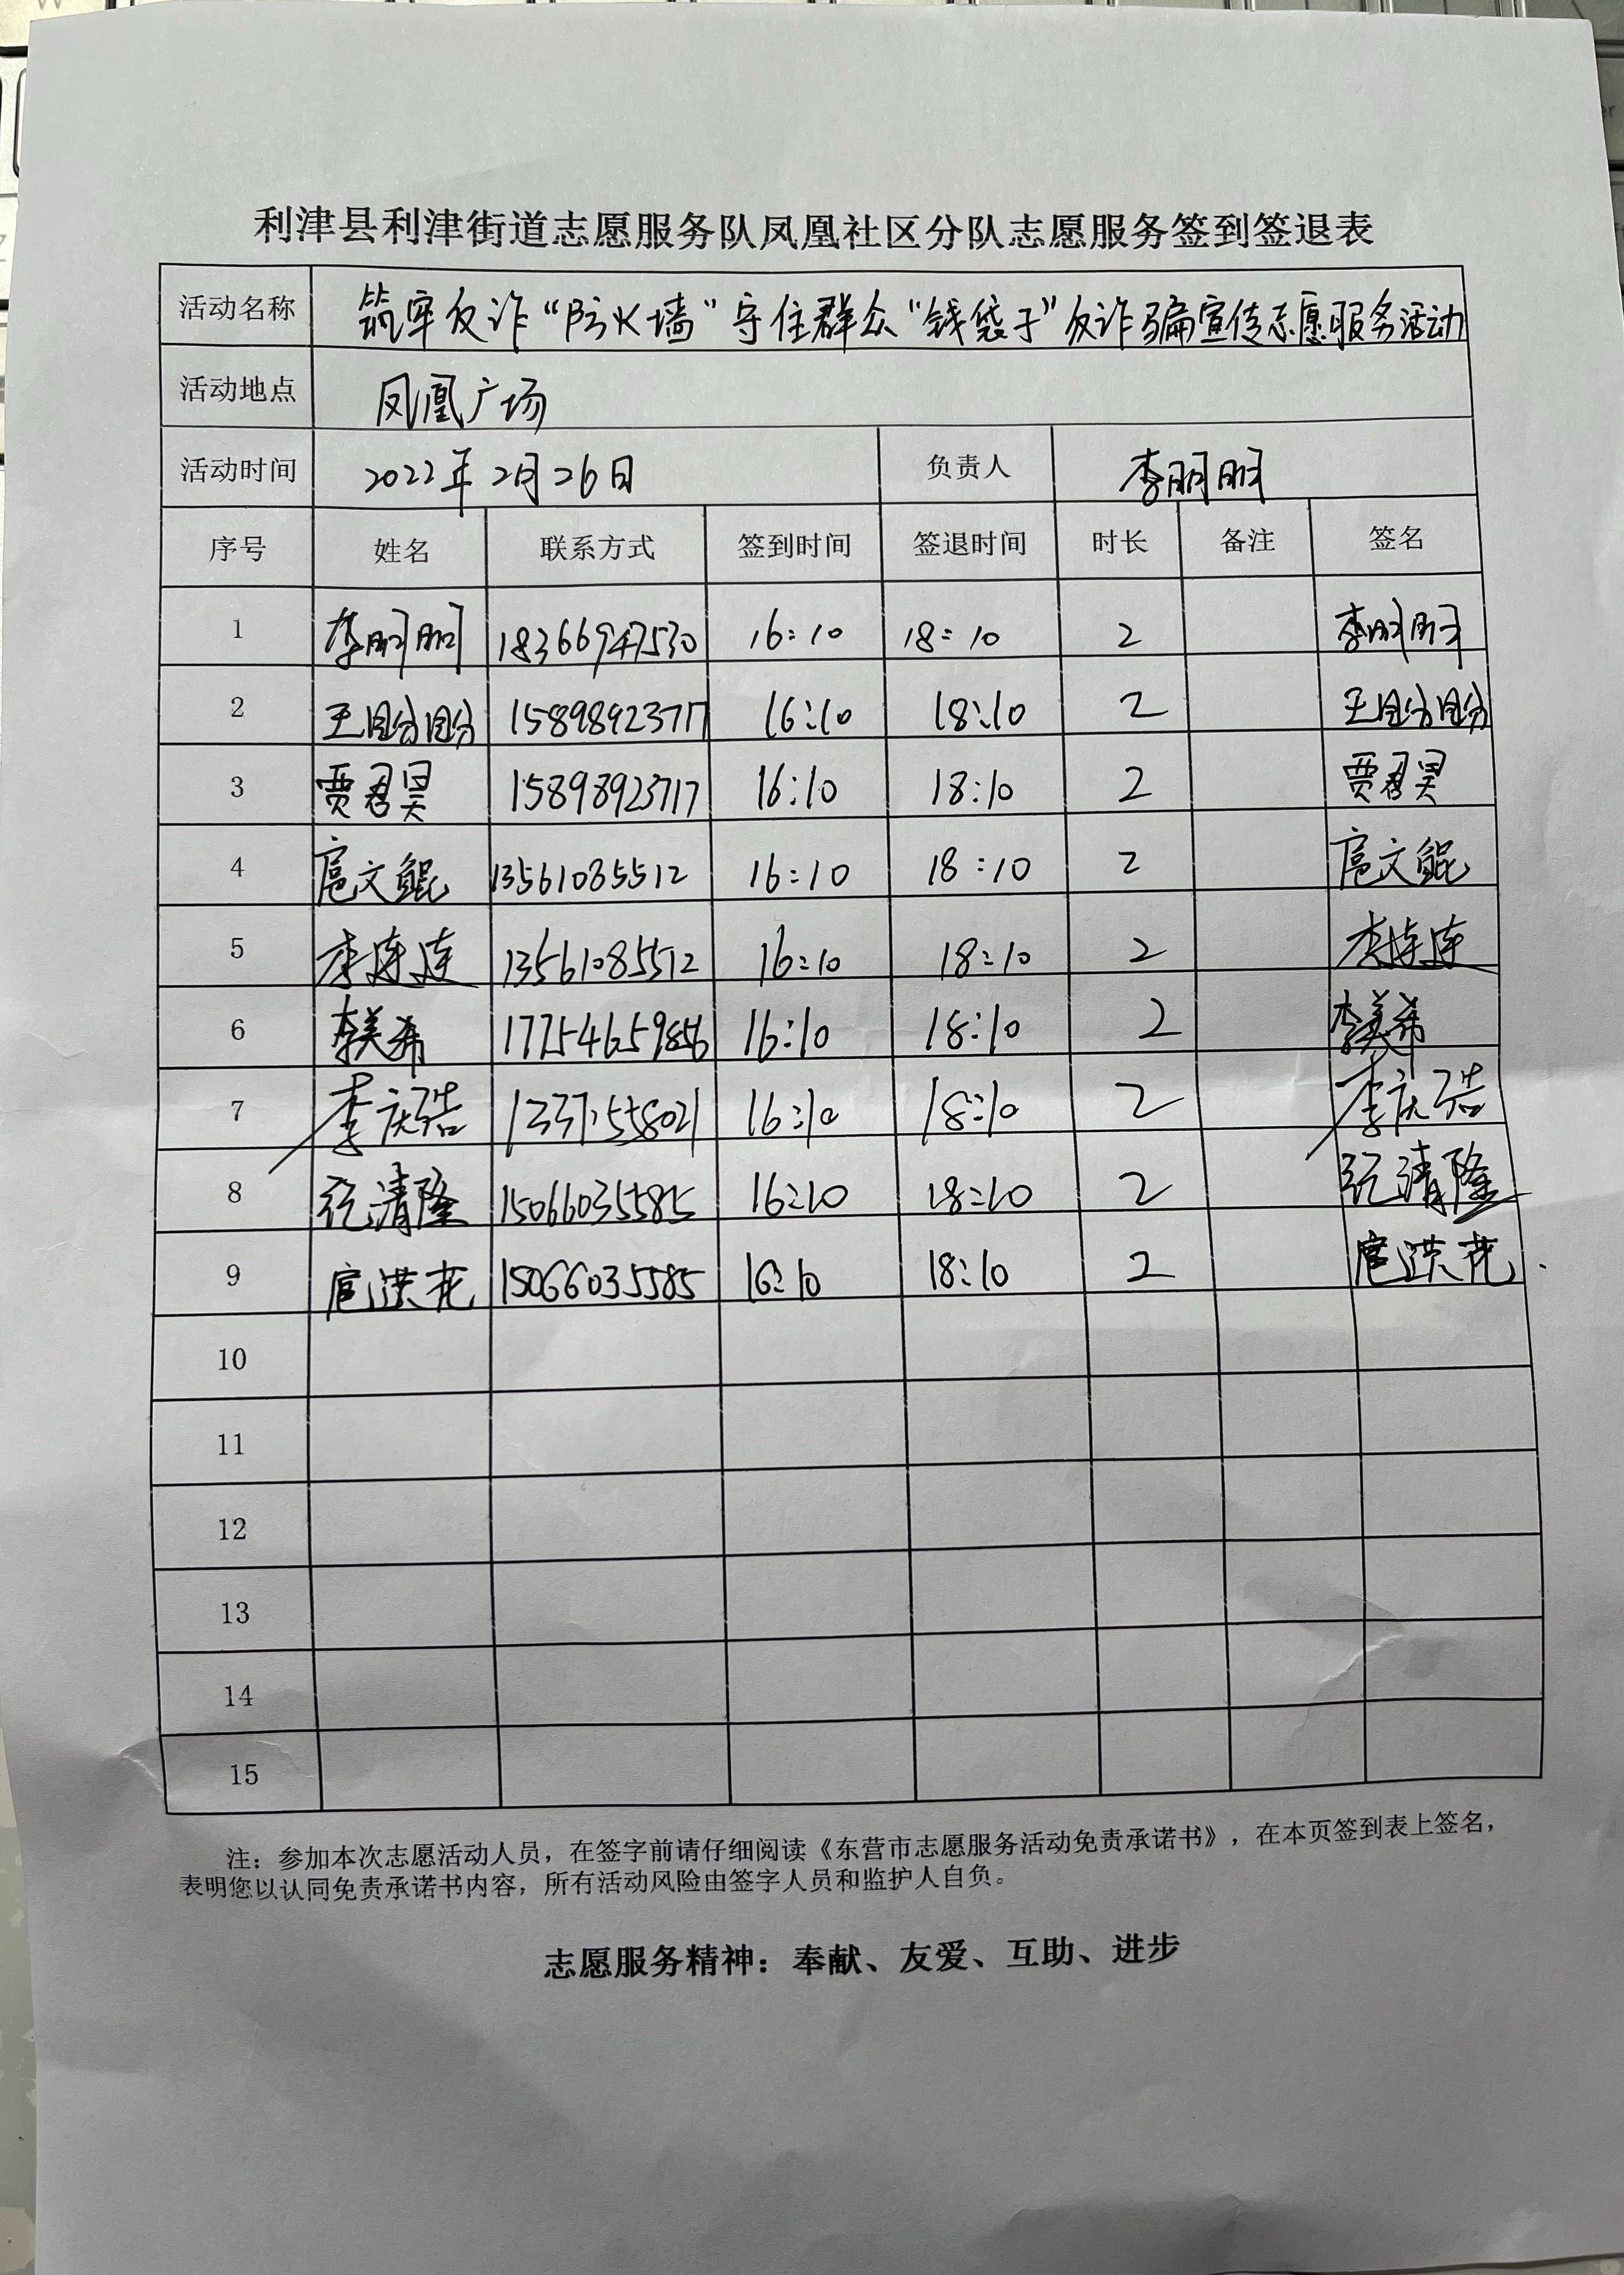 利津县利津街道志愿服务队凤凰社区分队志愿服务签到签退表
活动名称 筑牢反诈“防火墙”守住群众“钱袋子”反诈骗宣传志愿服务活动
活动地点 凤凰广场
活动时间 2022年2月26日 负责人 李朋朋
序号 姓名 联系方式 签到时间 签退时间 时长 备注 签名
1 李朋朋 18366947530 16:10 18:10 2 李朋朋
2 王盼盼 15898923717 16:10 18:10 2 王盼盼
3 贾君昊 15898923717 16:10 18:10 2 贾君昊
4 扈文鲲 13561085512 16:10 18:10 2 扈文鲲
5 李连连 13561085512 16:10 18:10 2 李连连
6 李美希 17754659856 16:10 18:10 2 李美希
7 李庆浩 16:10 18:10 2 李庆浩
8 清隆 15066035585 16:10 18:10 2 清隆
9 扈洪花 15066035585 16:10 18:10 2 扈洪花
10
11
12
13
14
15
注：参加本次志愿活动人员，在签字前请仔细阅读《东营市志愿服务活动免责承诺书》，在本页签到表上签名，
表明您以认同免责承诺书内容，所有活动风险由签字人员和监护人自负。
志愿服务精神：奉献、友爱、互助、进步